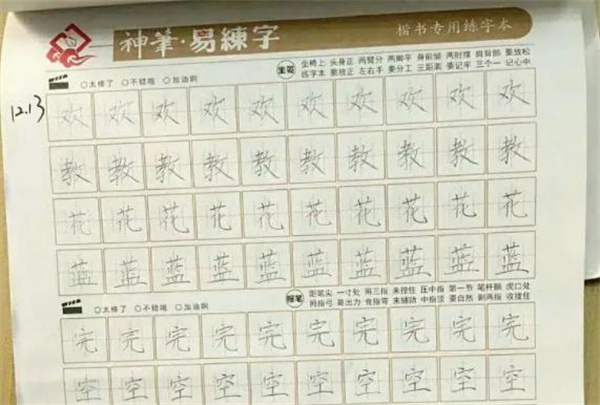 神筆·易練字 楷书专用练字本
坐姿 坐椅上 头身正 两臂分 两脚平 身前倾 两肘撑 肩背部 要放松
练字本 要放正 左右手 要分工 三距离 要记牢 三个一 记心中
WEEK ○太棒了 ○不错哦 ○加油啊
12.13
欢 欢 欢 欢 欢 欢 欢 欢 欢 欢
教 教 教 教 教 教 教 教 教 教
花 花 花 花 花 花 花 花 花 花
蓝 蓝 蓝 蓝 蓝 蓝 蓝 蓝 蓝 蓝
握笔 距笔尖 一寸处 用三指 来捏住 压中指 第一节 笔杆躺 虎口处
WEEK ○太棒了 ○不错哦 ○加油啊
完 完 完 完 完 完 完 完 完 完
空 空 空 空 空 空 空 空 空 空